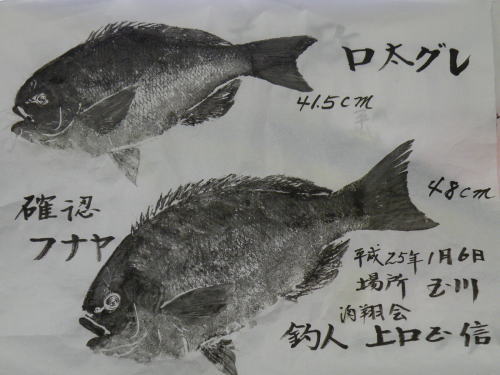 口太グレ
41.5cm
48cm
確認
フナヤ
平成25年1月6日
場所 玉川
翔会
釣人 上口正信